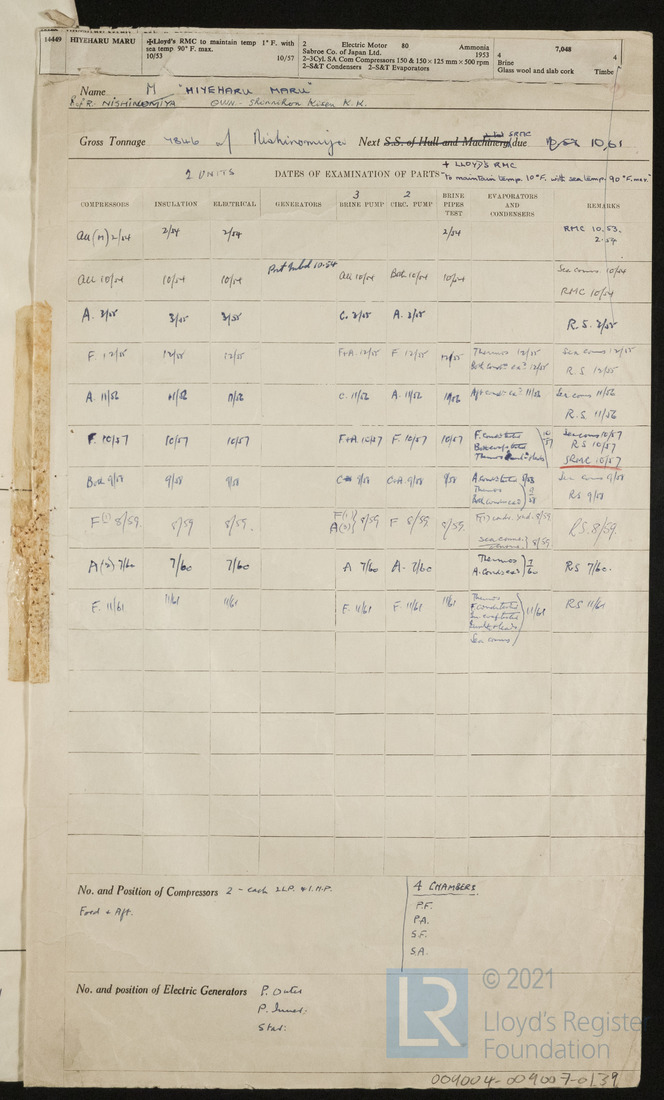 14449 HIYEHARU MARU ✠Lloyd's RMC to maintain temp 1° F. with sea temp 90° F. max. 10/53 10/57
2 Electric Motor 80 Ammonia
Sabroe Co. of Japan Ltd. 1953
2–3Cyl. SA Com Compressors 150 & 150 × 125 mm × 500 rpm
2–S&T Condensers 2–S&T Evaporators
7,048 4
4
Brine
Glass wool and slab cork Timbe
Name M "HIYEHARU MARU"
NISHINOMIYA OWN. K.K.
Gross Tonnage of Nishinomiya Next S.S. of Hull and Machinery due SRMC 10.61
+ LLOYD'S RMC
2 UNITS DATES OF EXAMINATION OF PARTS "To maintain temp. 10°F. with sea temp. 90°F. max."
COMPRESSORS INSULATION ELECTRICAL GENERATORS 3 BRINE PUMP 2 CIRC. PUMP BRINE PIPES TEST EVAPORATORS AND CONDENSERS REMARKS
All (M) 2/54 2/54 2/54 2/54 RMC 10.53.
2.54
All 10/54 10/54 10/54 10.54 All 10/54 Both 10/54 10/54 Sea conns. 10/54
RMC 10/54
A. 3/55 3/55 3/55 C. 3/55 A. 3/55 R.S. 3/55
F. 12/55 12/55 12/55 F+A. 12/55 F. 12/55 12/55 Thermos 12/55 Sea conns 12/55
12/55 R.S 12/55
A. 11/56 11/56 11/56 C. 11/56 A. 11/56 11/56 11/56 Sea conns 11/56
R.S. 11/56
F. 10/57 10/57 10/57 F+A. 10/57 F. 10/57 10/57 F. cond tested 10/57 Sea conns 10/57
Both evaps tested RS 10/57
Thermos SRMC 10/57
Both 9/58 9/58 9/58 C 9/58 C+A. 9/58 9/58 A. cond tested 9/58 Sea conns 9/58
Thermos 9/58 RS 9/58
F(1) 8/59. 8/59 8/59. F(1) A(2) 8/59 F 8/59 8/59. 8/59 RS. 8/59.
sea conns. 8/59.
A(2) 7/60 7/60 7/60 A 7/60 A. 7/60 Thermos 7/60 RS 7/60.
F. 11/61 11/61 11/61 F. 11/61 F. 11/61 11/61 Thermos 11/61 RS 11/61
F cond tested
Sea conns
No. and Position of Compressors 2 - each 2 L.P. & 1 H.P.
Ford + Aft.
4 CHAMBERS.
P.F.
P.A.
S.F.
S.A.
No. and position of Electric Generators P. Outer
P. Inner:
Star:
LR © 2021
Lloyd's Register
Foundation
009004-009007-0139